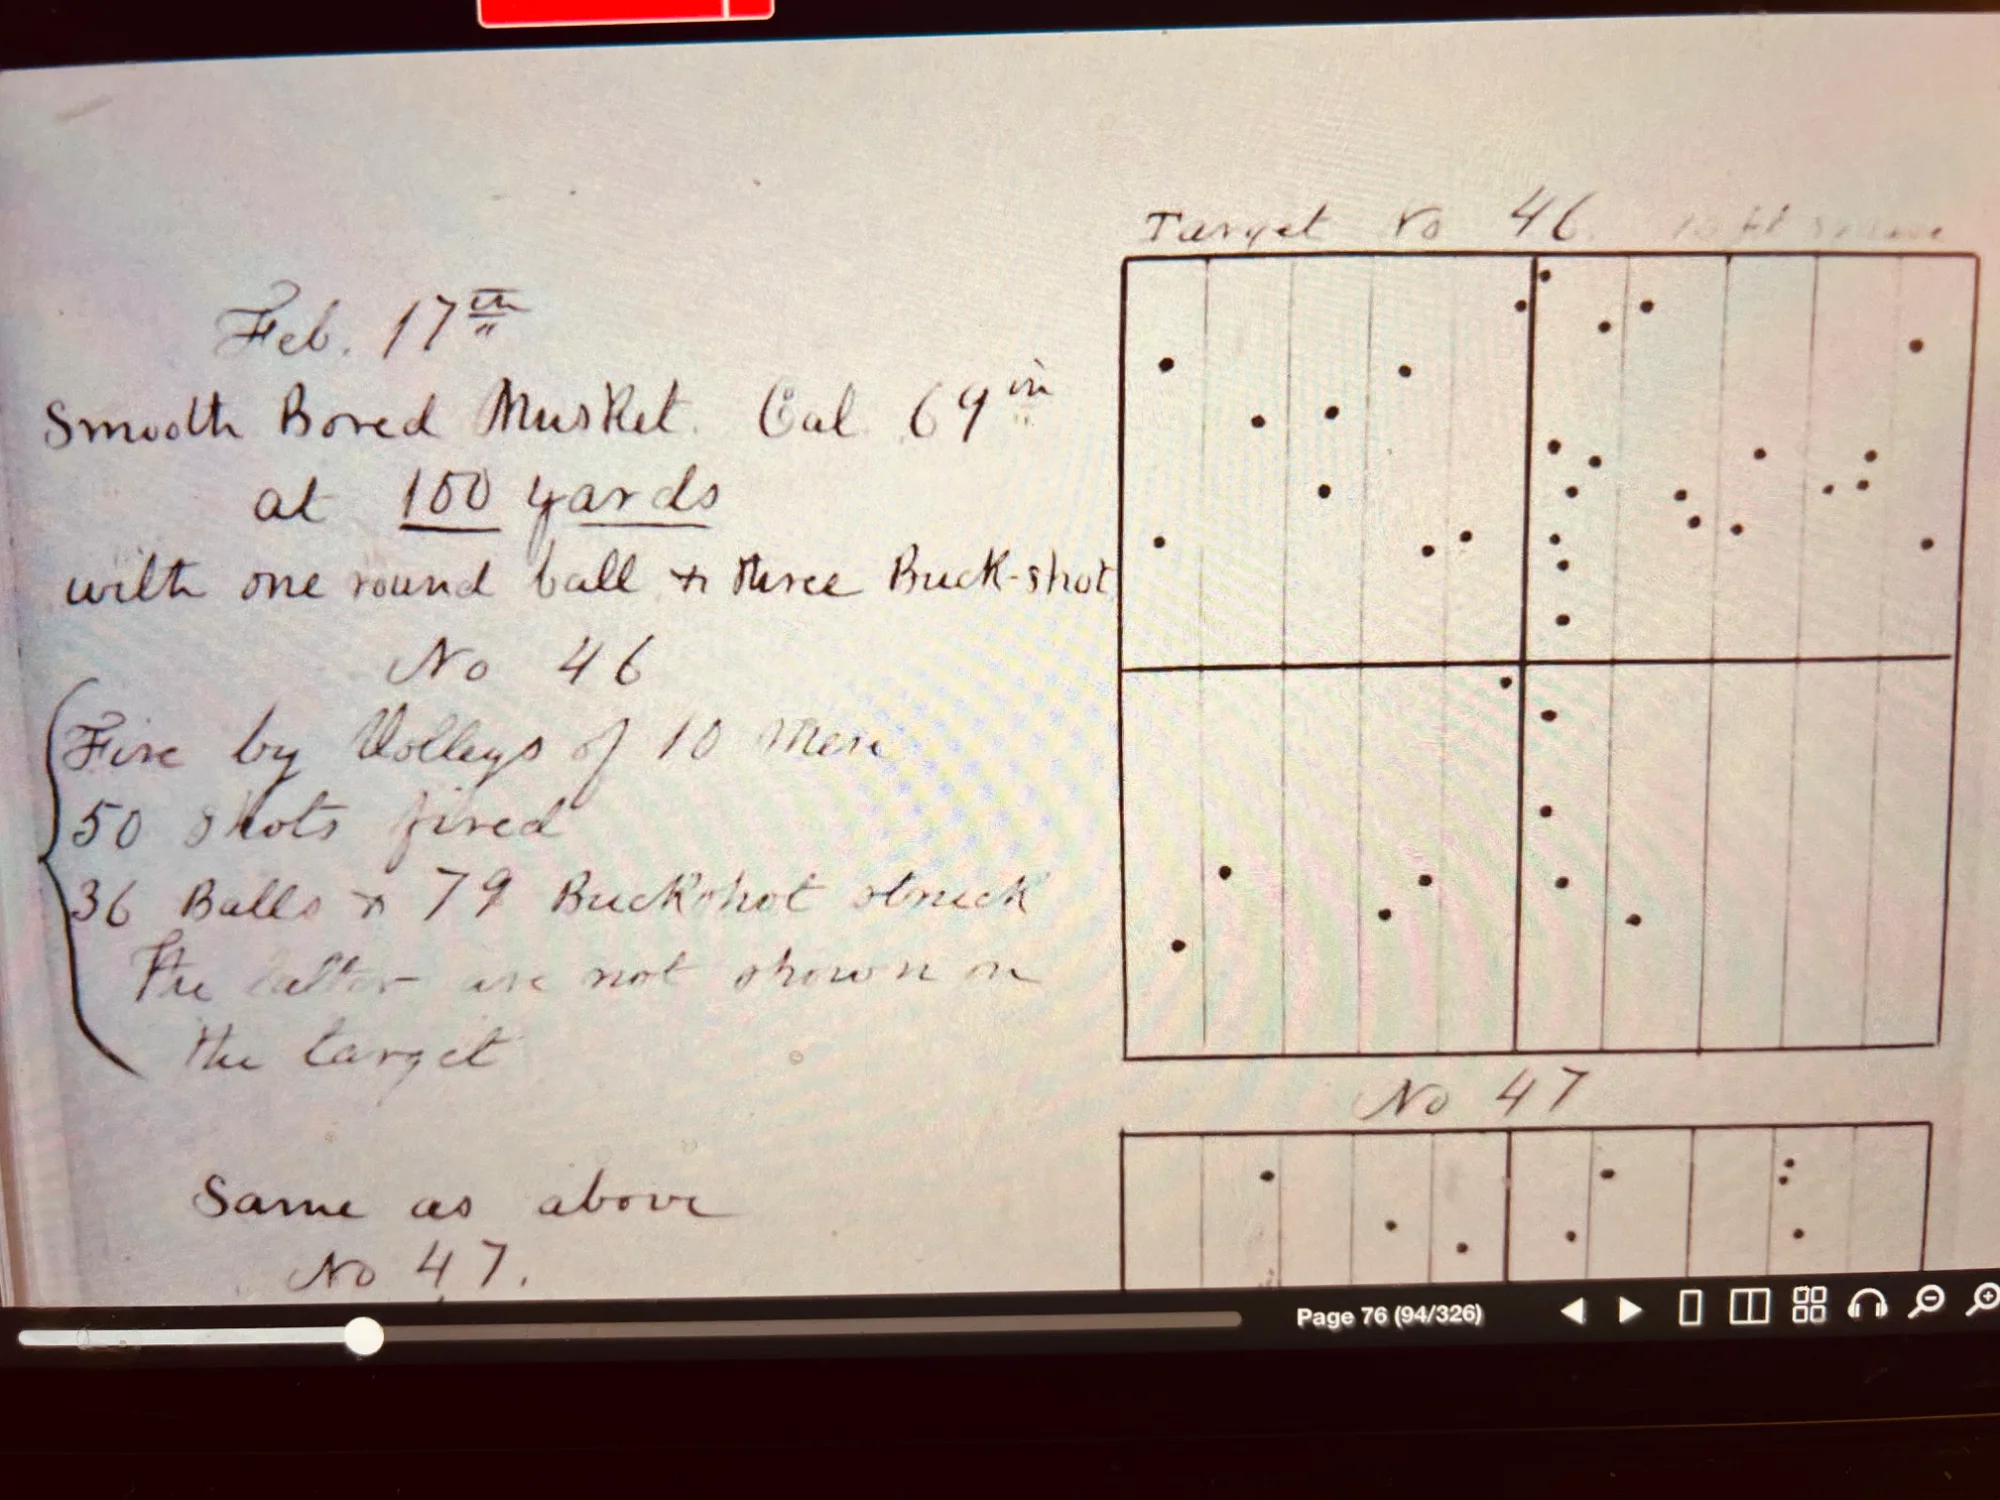 Target No 46. 10 ft square
Feb. 17th
Smooth Bored Musket. Cal .69 in
at 100 yards
with one round ball & three Buck-shot
No 46
Fire by Volleys of 10 Men
50 shots fired
36 Balls & 79 Buckshot struck
The latter are not shown on
the target
No 47
Same as above
No 47.
Page 76 (94/326)